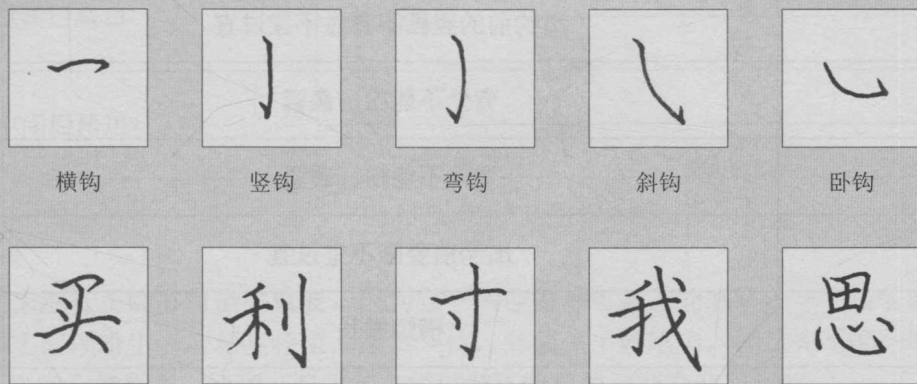 横钩 竖钩 弯钩 斜钩 卧钩
买 利 寸 我 思